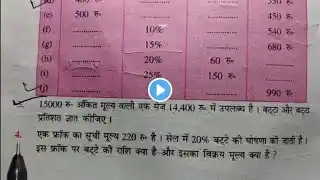 (e) 500 रु० 540 रु०
(f) 10% 530 रु०
(g) 15% 680 रु०
(h) 20% 60 रु०
(i) 25% 150 रु०
(j) 990 रु०
15000 रु० अंकित मूल्य वाली एक मेज 14,400 रु० में उपलब्ध है। बट्टा और बट्टा
प्रतिशत ज्ञात कीजिए।
4. एक फ्रॉक का सूची मूल्य 220 रु० है। सेल में 20% बट्टे की घोषणा की जाती है।
इस फ्रॉक पर बट्टे की राशि क्या है और इसका विक्रय मूल्य क्या है?